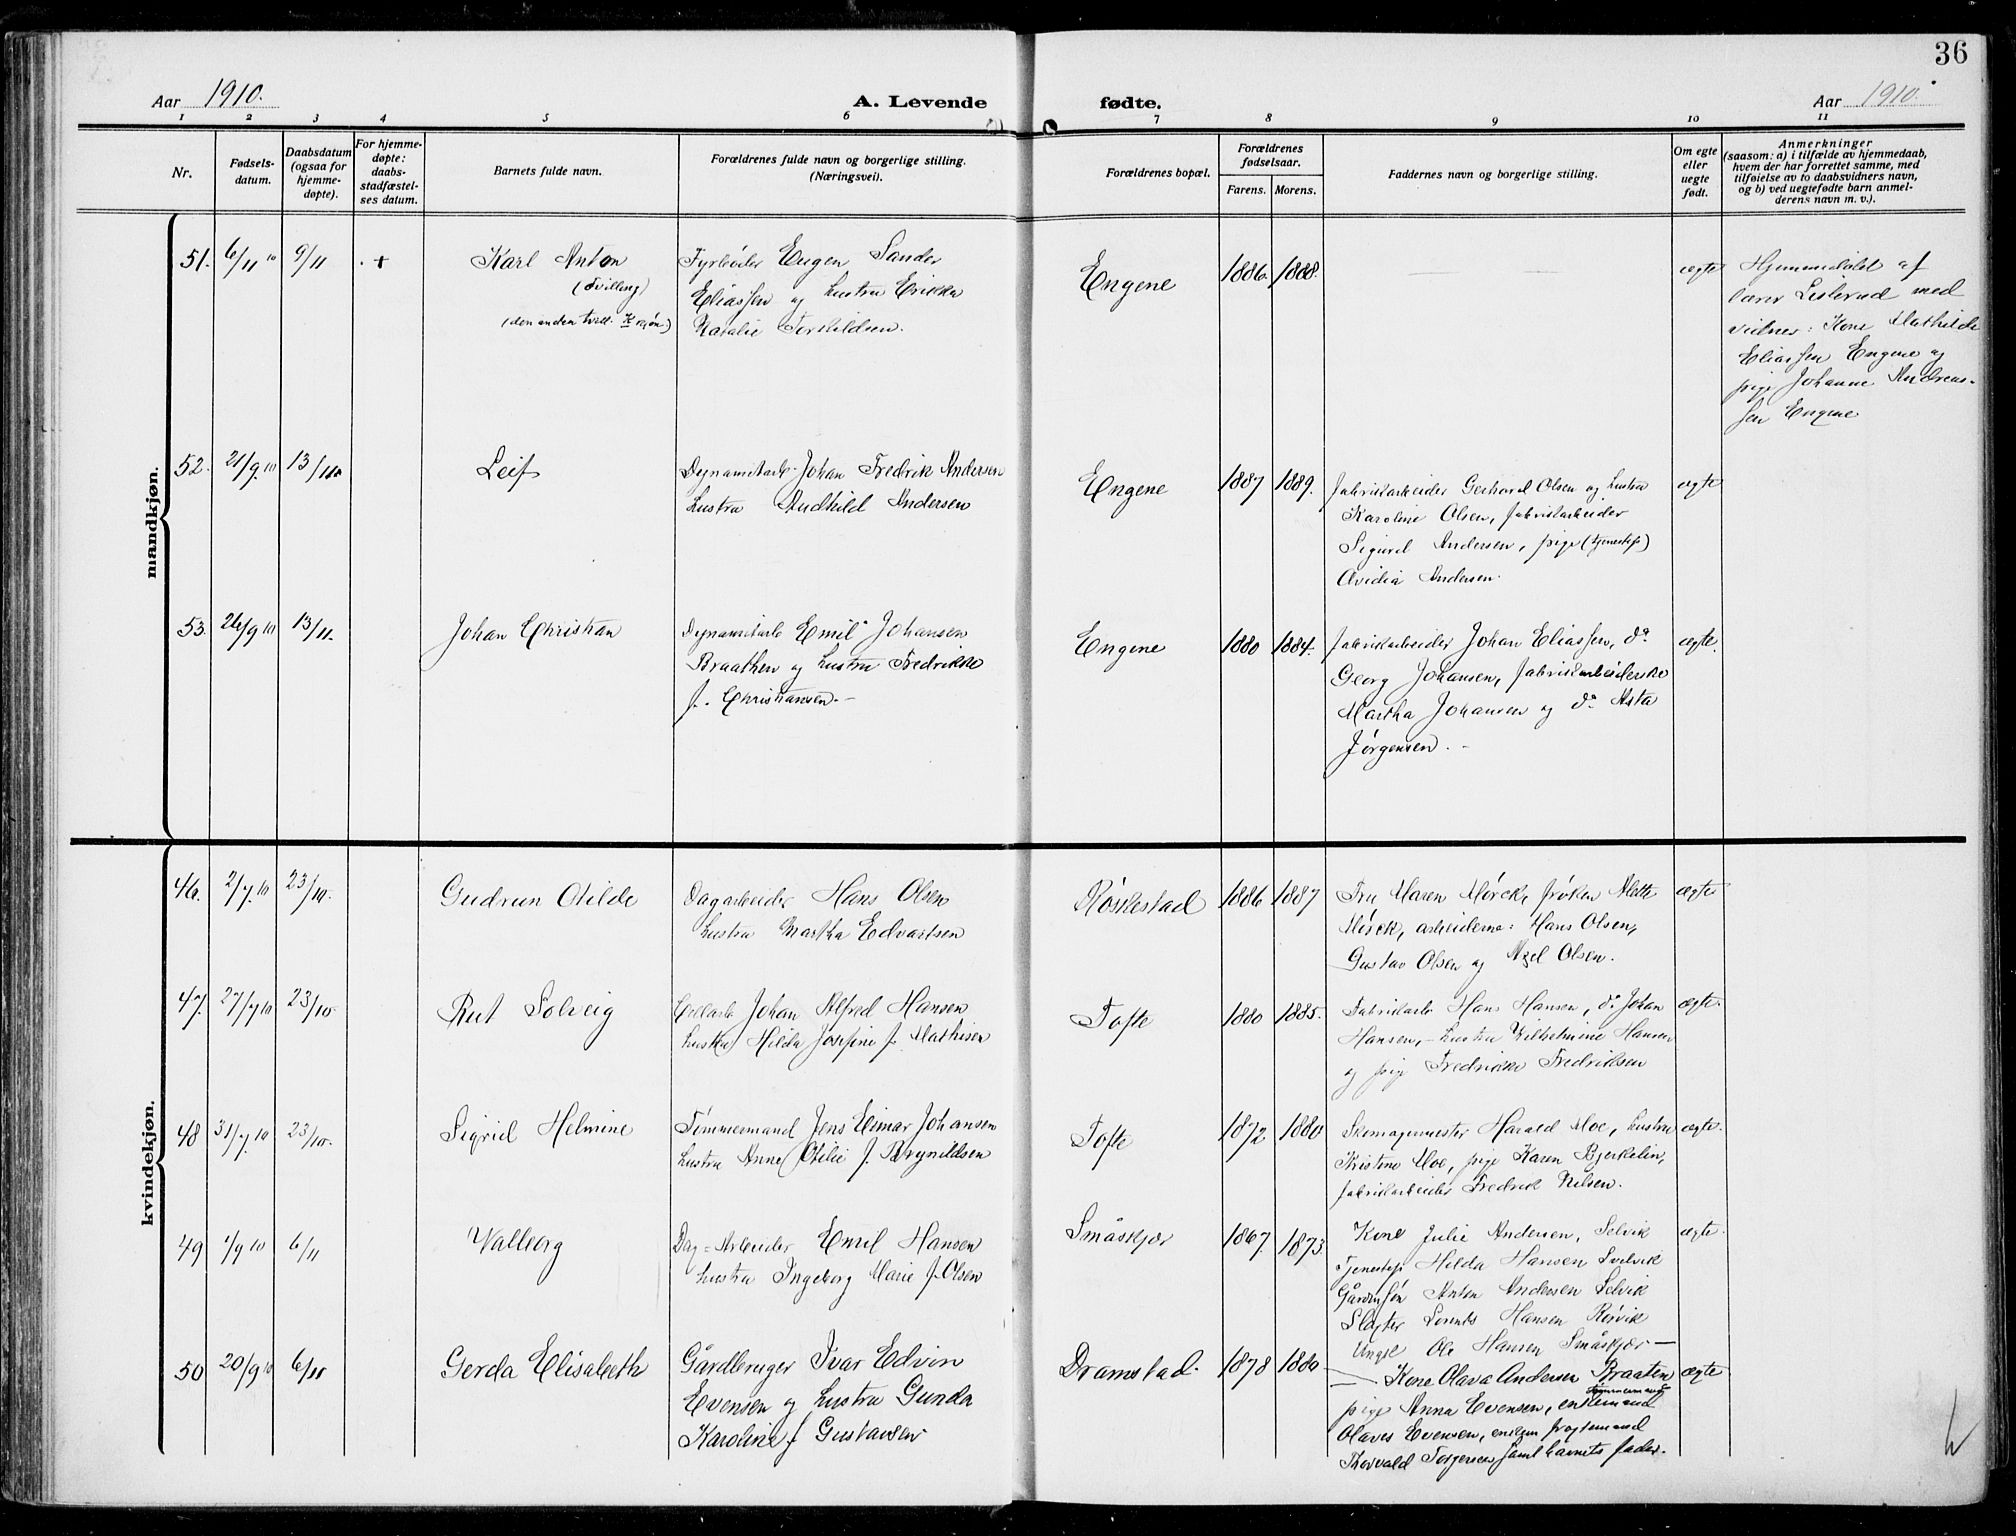 36
Aar 1910.
A. Levende fødte.
Aar 1910.
1 2 3 4 5 6 7 8 9 10 11
Nr.
Fødsels-
datum.
Daabsdatum
(ogsaa for
hjemme-
døpte).
For hjemme-
døpte:
daabs-
stadfæstel-
ses datum.
Barnets fulde navn.
Forældrenes fulde navn og borgerlige stilling.
(Næringsvei).
Forældrenes bopæl.
Forældrenes
fødselsaar.
Farens. Morens.
Faddernes navn og borgerlige stilling.
Om egte
eller
uegte
født.
Anmerkninger
(saasom: a) i tilfælde av hjemmedaab,
hvem der har forrettet samme, med
tilføielse av to daabsvidners navn,
og b) ved uegtefødte barn anmel-
derens navn m. v.).
mandkjøn.
51. 6/11 10 9/11 + Karl Anton
(Tvilling)
(den anden tvill. K kjøn)
Fyrbøder Eugen Sander
Eliassen og hustru Erikka
Natalie Torkildsen.
Engene 1886. 1888. ægte
Hjemmedøbt af
lærer Leslerud med
vidner: Kone Mathilde
Eliassen Engene og
pige Johanne Andreas-
sen Engene
52. 21/9 10 13/11 10 Leif
Dynamitarb. Johan Fredrik Andersen
hustru Audhild Andersen
Engene 1887 1889.
fabrikarbeider Gerhard Olsen og hustru
Karoline Olsen, fabrikarbeider
Sigurd Andersen, pige (tjenestep)
Ovidia Andersen.
ægte
53. 26/9 10 13/11. Johan Christian
Dynamitarb Emil Johansen
Braathen og hustru Fredrikke
f. Christiansen. –
Engene 1880 1884.
fabrikarbeider Johan Eliassen, do
Georg Johansen, fabrikarbeiderske
Martha Johansen og do Asta
Jørgensen. –
ægte.
kvindekjøn.
46. 2/7 10 23/10. Gudrun Otilde
Dagarbeider Hans Olsen
hustru Martha Edvartsen
Røskestad 1886 1887
Fru Maren Mørck, frøken Mette
Mørck, arbeiderne: Hans Olsen,
Gustav Olsen og Axel Olsen.
ægte
47. 27/7 10 23/10. Rut Solveig
Cellarb Johan Alfred Hansen
hustru Hilda Josefine f. Mathisen
Tofte 1880 1885.
Fabrikarb Hans Hansen, do Johan
Hansen, – hustru Vilhelmine Hansen
og pige Fredrikke Fredriksen
ægte.
48 31/7 10 23/10. Sigrid Helmine
Tømmermand Jens Elmar Johansen
hustru Anne Otilie f. Brynildsen
Tofte 1872 1880
Skomagermester Harald Moe, hustru
Kristine Moe, pige Karen Bjerkelin,
fabrikarbeider Fredrik Nilsen.
ægte.
49 1/9 10 6/11 Valborg
Dag=Arbeider Emil Hansen
hustru Ingeborg Marie f. Olsen
Småskjær 1867. 1873.
Kone Julie Andersen, Selvik
Tjenestep Hilda Hansen Svelvik
Gårdmsøn Anton Andersen Selvik
Slagter Lorents Hansen Rørvik
Ungk Ole Hansen Småskjær –
ægte.
50 20/9 10 6/11 Gerda Elisabeth
Gårdbruger Ivar Edvin
Evensen og hustru Gunda
Karoline f Gustavsen
Dramstad. 1878 1880
Kone Olava Andersen Braaten
pige Anna Evensen, enkemand
Olaves Evensen,
Thorvald Torgersen samt barnets fader.
ægte